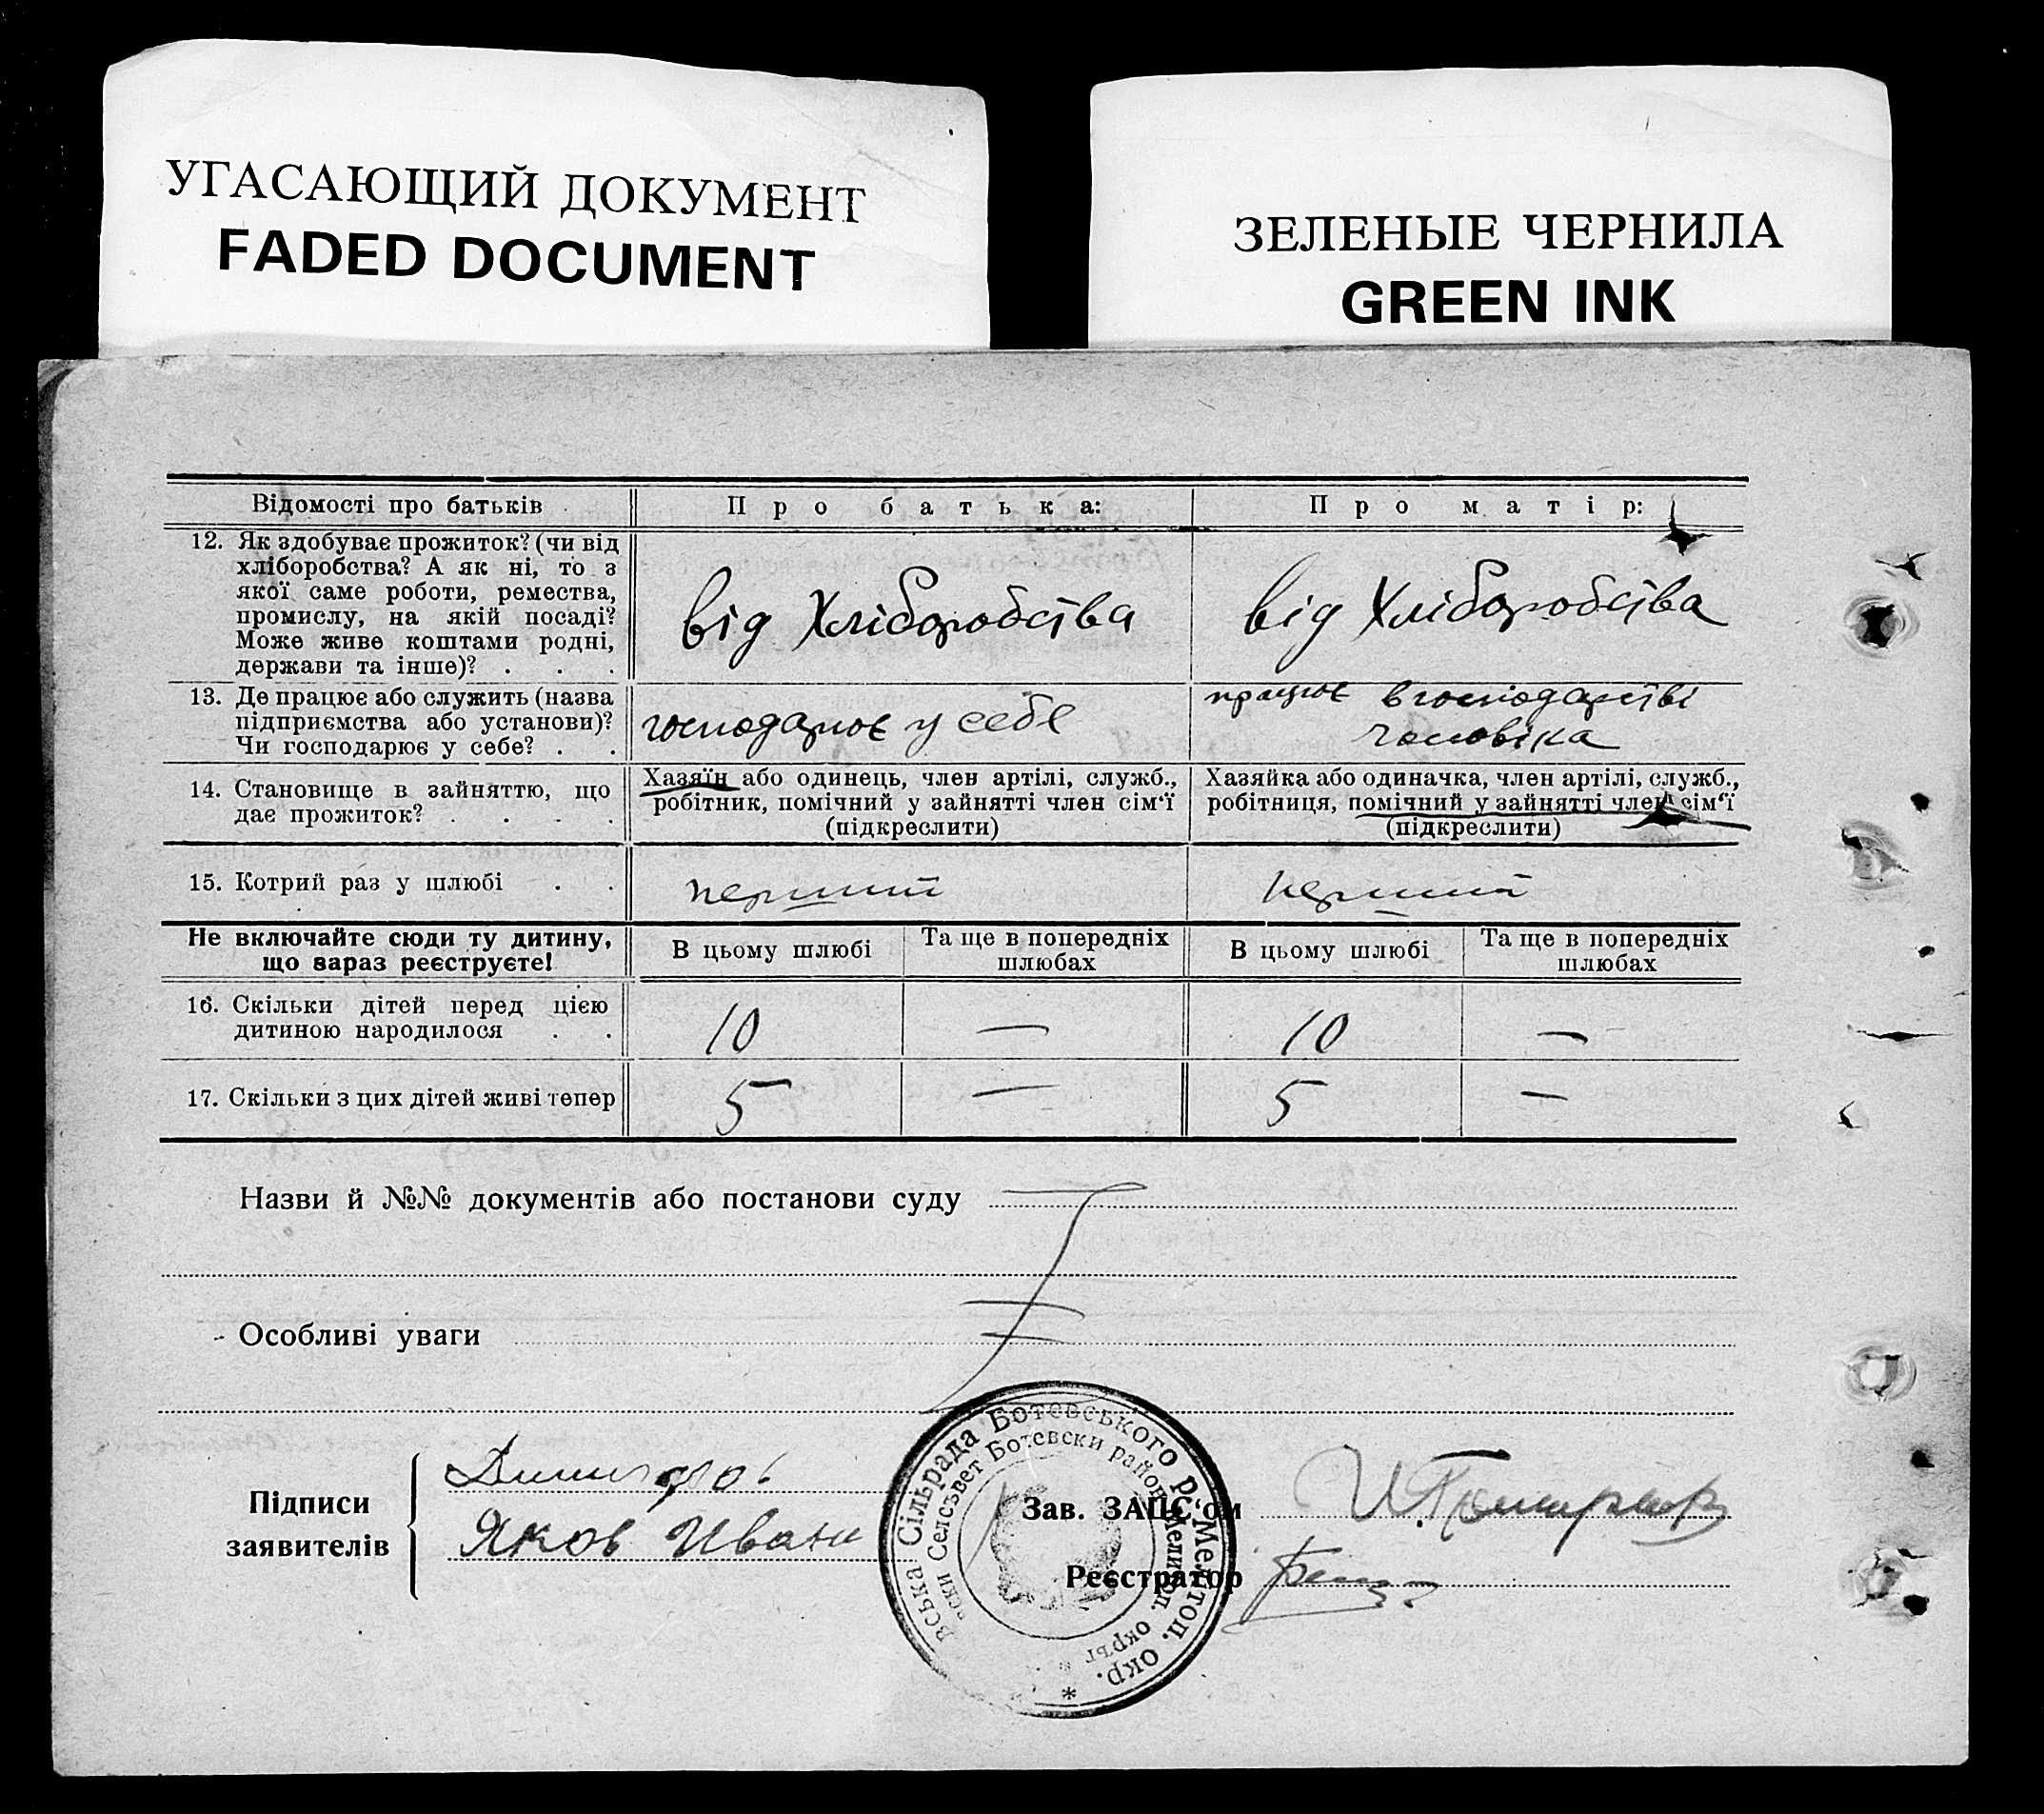 УГАСАЮЩИЙ ДОКУМЕНТ
FADED DOCUMENT
ЗЕЛЕНЫЕ ЧЕРНИЛА
GREEN INK
Відомості про батьків
Про батька:
Про матір:
12. Як здобуває прожиток? (чи від
хліборобства? А як ні, то з
якої саме роботи, ремества,
промислу, на якій посаді?
Може живе коштами родні,
держави та інше)? . . .
від Хліборобства
від Хліборобства
13. Де працює або служить (назва
підприємства або установи)?
Чи господарює у себе? . .
господарює у себе
працює в господарстві
чоловіка
14. Становище в зайняттю, що
дає прожиток? . . . .
Хазяїн або одинець, член артілі, служб.,
робітник, помічний у зайнятті член сім'ї
(підкреслити)
Хазяйка або одиначка, член артілі, служб.,
робітниця, помічний у зайнятті член сім'ї
(підкреслити)
15. Котрий раз у шлюбі . .
перший
перший
Не включайте сюди ту дитину,
що зараз реєструєте!
В цьому шлюбі
Та ще в попередніх
шлюбах
В цьому шлюбі
Та ще в попередніх
шлюбах
16. Скільки дітей перед цією
дитиною народилося . .
10
—
10
—
17. Скільки з цих дітей живі тепер
5
—
5
—
Назви й №№ документів або постанови суду
Особливі уваги
Підписи
заявителів
Яков Ивани
Зав. ЗАЦС'ом
Реєстратор
вська Сільрада Ботевського р. Мелітоп. окр. *
ски Селсъвет Ботевски район Мелитоп. окръг *